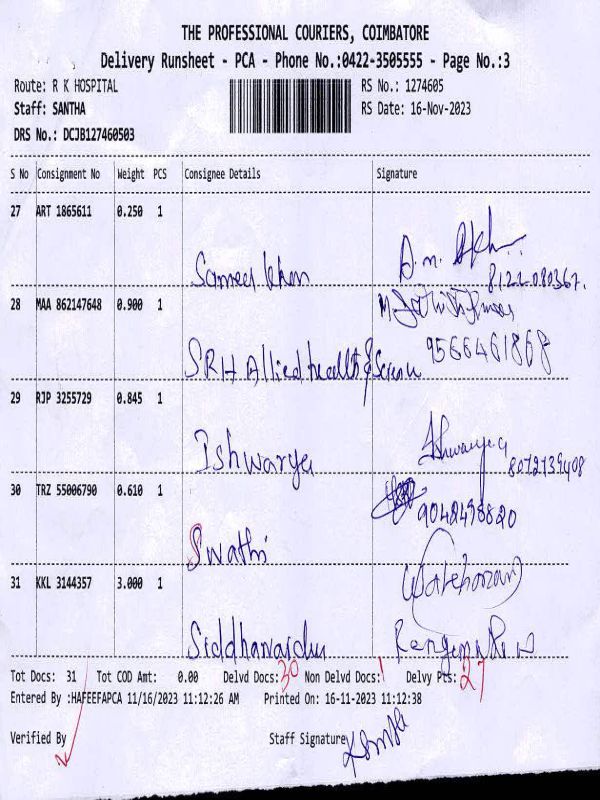 THE PROFESSIONAL COURIERS, COIMBATORE
Delivery Runsheet - PCA - Phone No.:0422-3505555 - Page No.:3
Route: R K HOSPITAL RS No.: 1274605
Staff: SANTHA RS Date: 16-Nov-2023
DRS No.: DCJB127460503
S No Consignment No Weight PCS Consignee Details Signature
27 ART 1865611 0.250 1
Sameer khan 8122080367.
28 MAA 862147648 0.900 1
SRH Allied health & Science 9566461868
29 RJP 3255729 0.845 1
Ishwarya Ishwarya G 8072739408
30 TRZ 55006790 0.610 1
Swathi 9042498820
31 KKL 3144357 3.000 1
Siddhavardhu
Tot Docs: 31 Tot COD Amt: 0.00 Delvd Docs: 30 Non Delvd Docs: 1 Delvy Pts: 27
Entered By :HAFEEFAPCA 11/16/2023 11:12:26 AM Printed On: 16-11-2023 11:12:38
Verified By Staff Signature